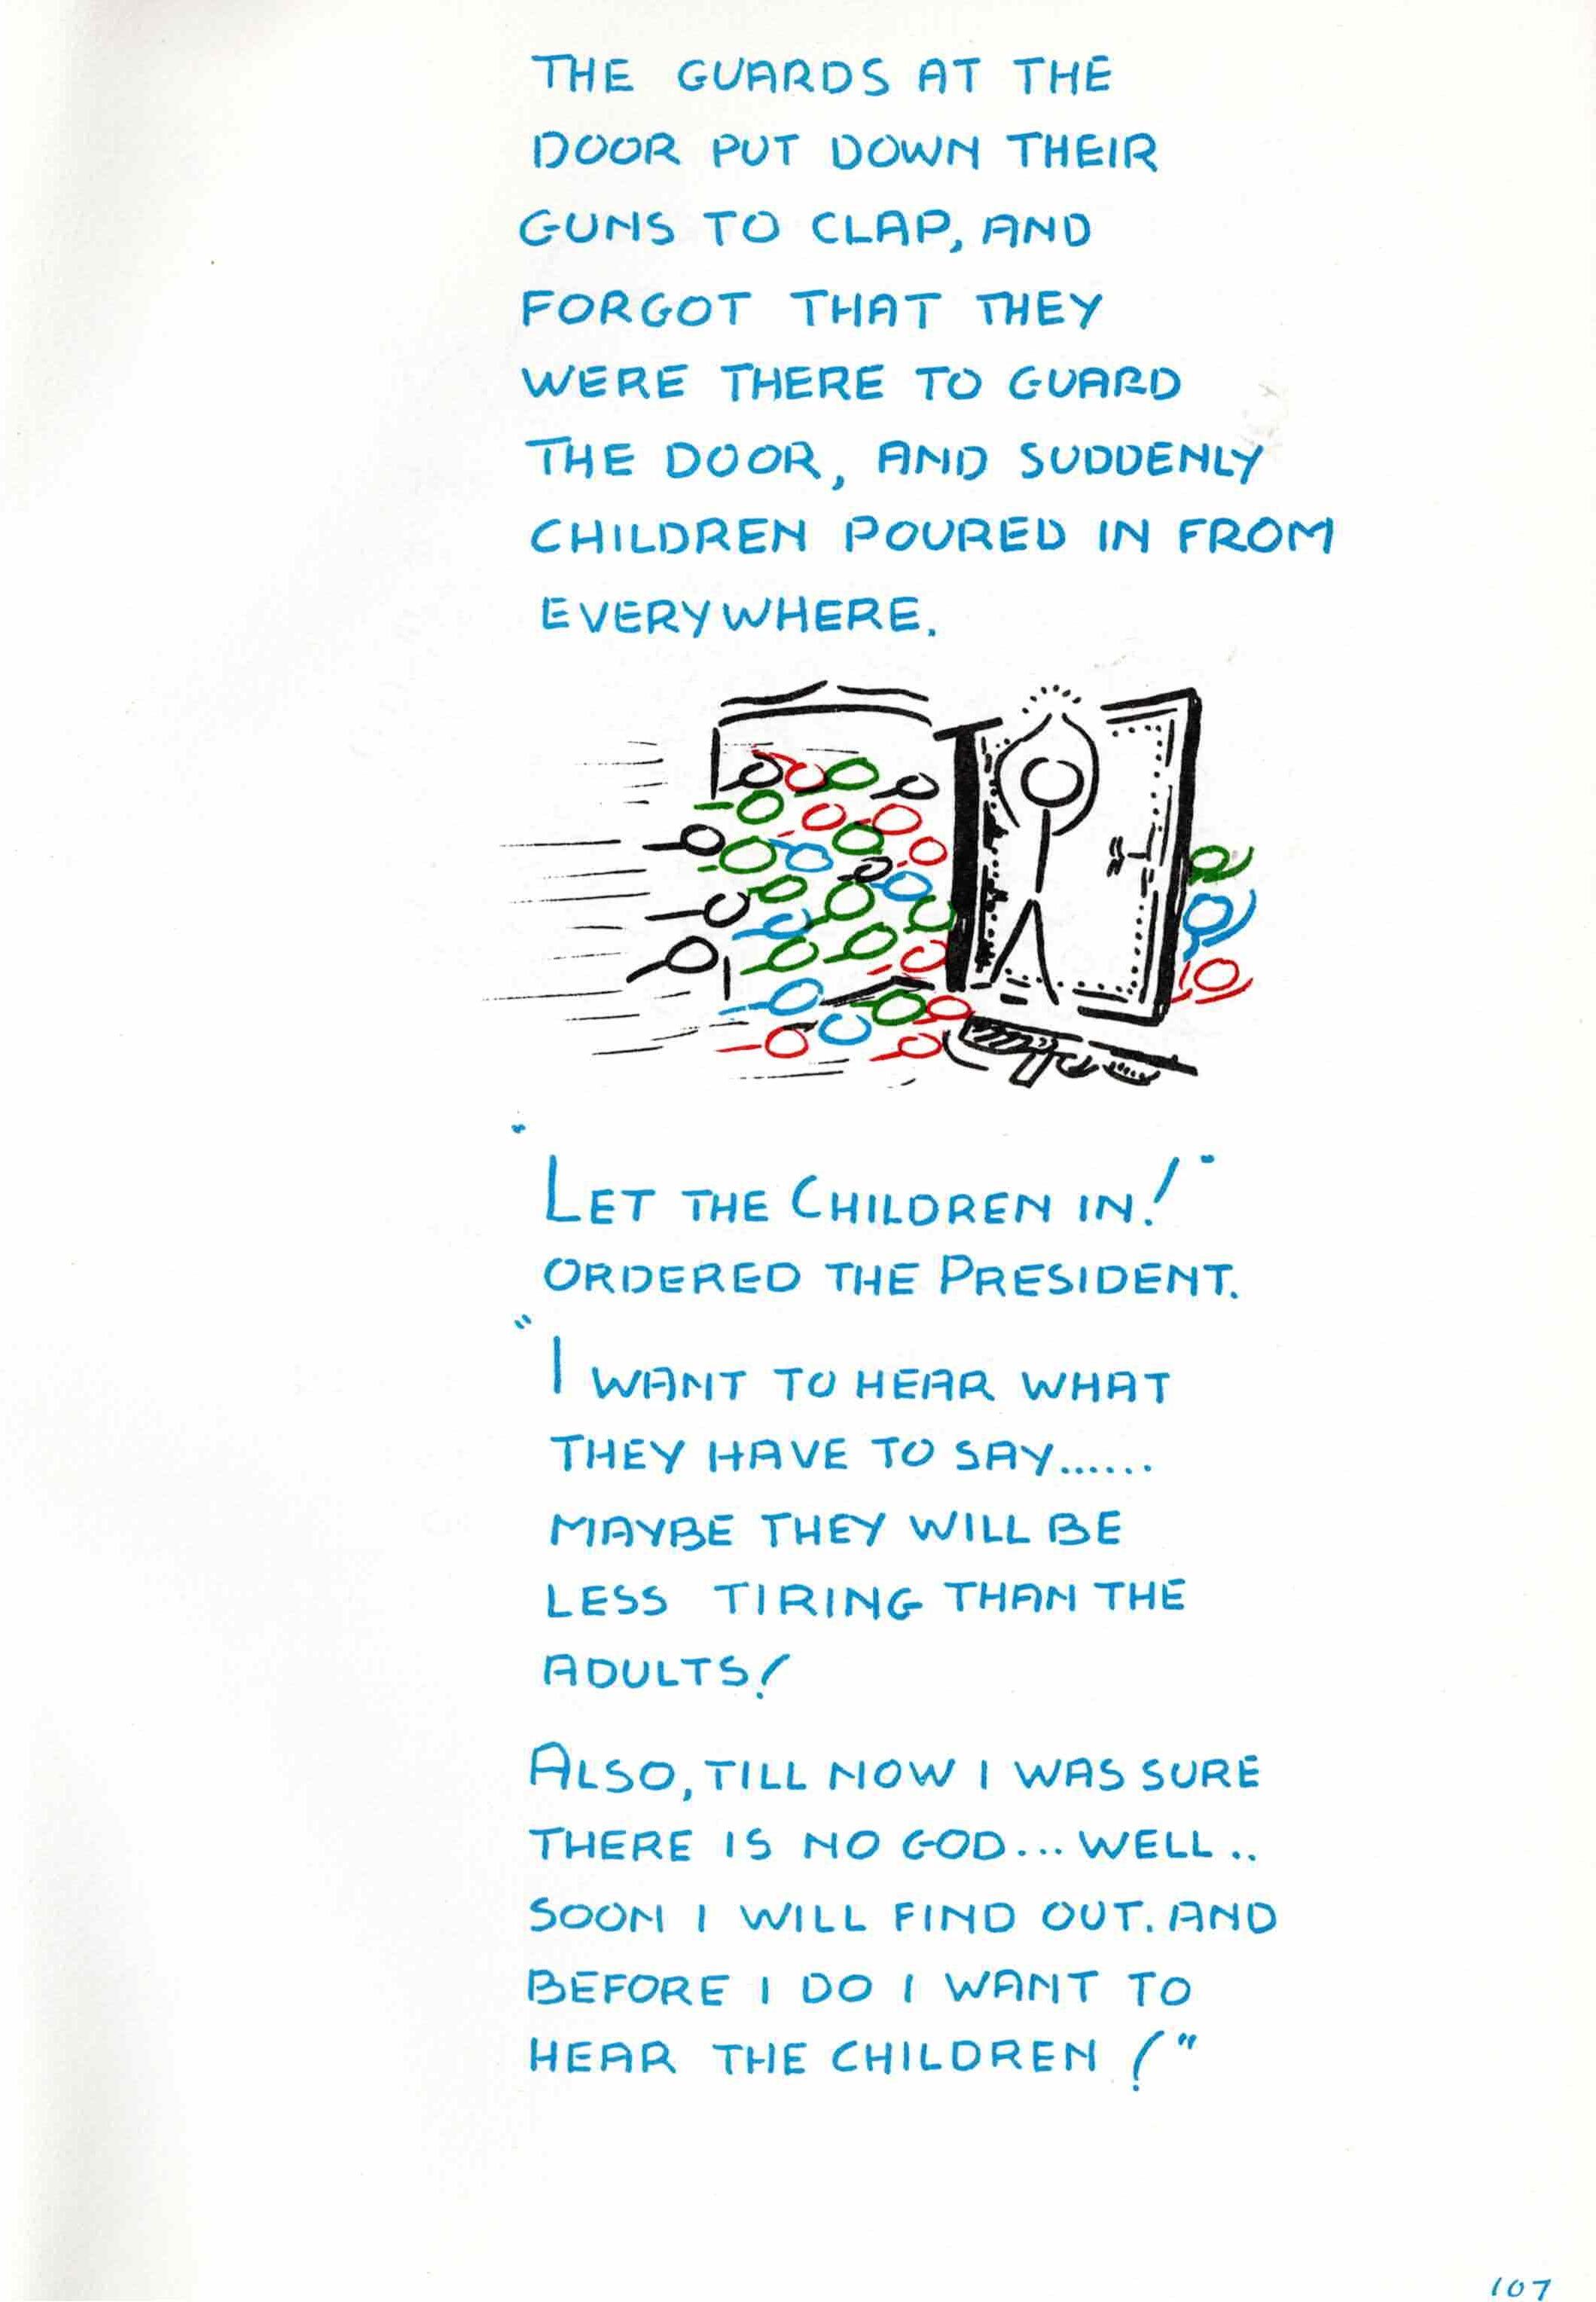 THE GUARDS AT THE
DOOR PUT DOWN THEIR
GUNS TO CLAP, AND
FORGOT THAT THEY
WERE THERE TO GUARD
THE DOOR, AND SUDDENLY
CHILDREN POURED IN FROM
EVERYWHERE.
"LET THE CHILDREN IN!"
ORDERED THE PRESIDENT.
"I WANT TO HEAR WHAT
THEY HAVE TO SAY......
MAYBE THEY WILL BE
LESS TIRING THAN THE
ADULTS!
ALSO, TILL NOW I WAS SURE
THERE IS NO GOD... WELL..
SOON I WILL FIND OUT. AND
BEFORE I DO I WANT TO
HEAR THE CHILDREN!"
107